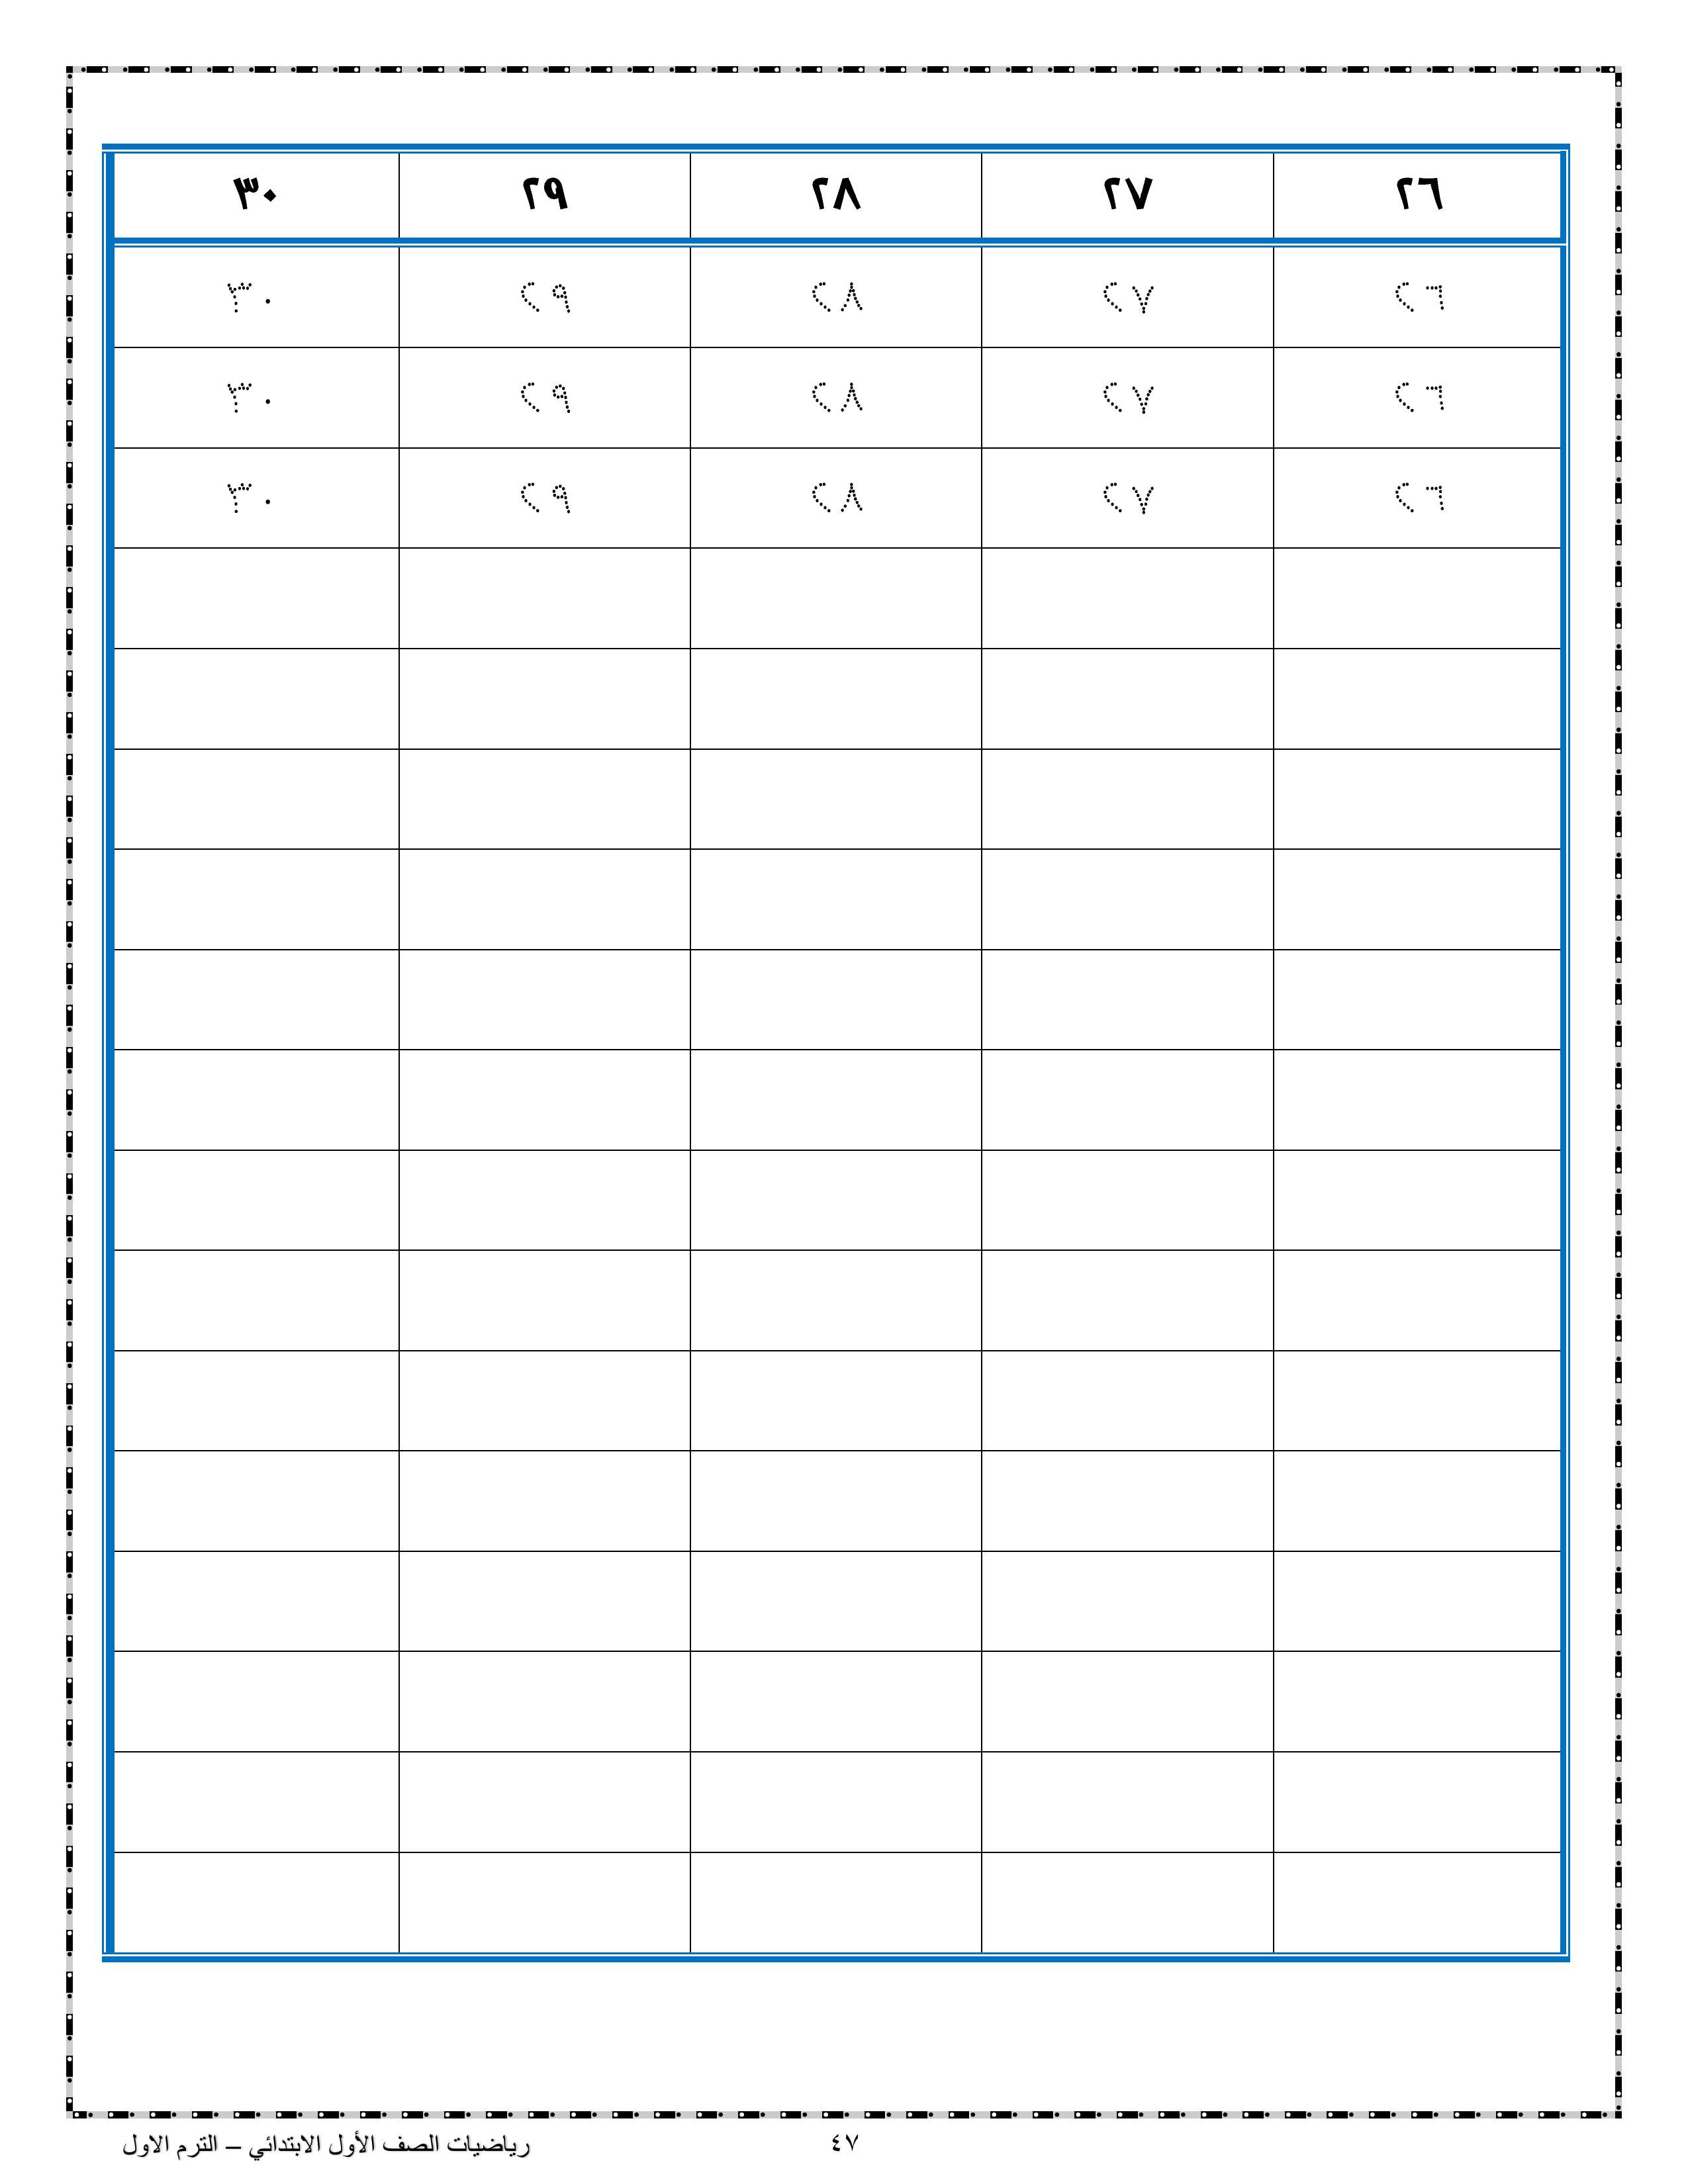 ٢٦ ٢٧ ٢٨ ٢٩ ٣٠
٢٦ ٢٧ ٢٨ ٢٩ ٣٠
٢٦ ٢٧ ٢٨ ٢٩ ٣٠
٢٦ ٢٧ ٢٨ ٢٩ ٣٠
٤٧ رياضيات الصف الأول الابتدائي – الترم الاول